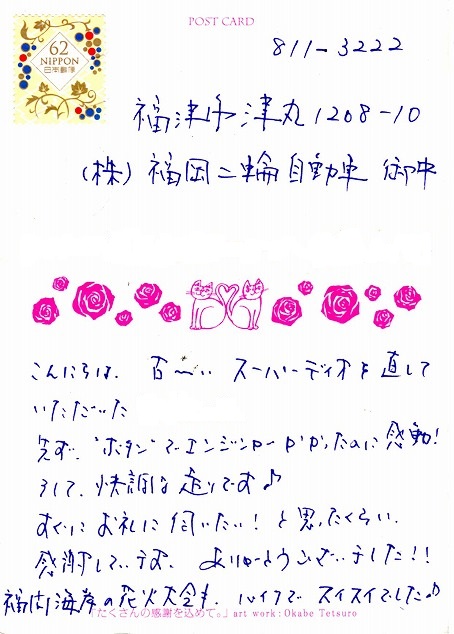 POST CARD
62
NIPPON
日本郵便
811-3222
福津市津丸1208-10
(株)福岡二輪自動車 御中
こんにちは、スーパーディオを直して
いただいた
先ず、"ボタン"でエンジンがかかったのに感動!
そして、快調な走りです♪
すぐにお礼に伺いたい!と思ったくらい、
感謝しています。ありがとうございました!!
福間海岸の花火大会も、バイクでスイスイでした♪
「たくさんの感謝を込めて。」art work:Okabe Tetsuro